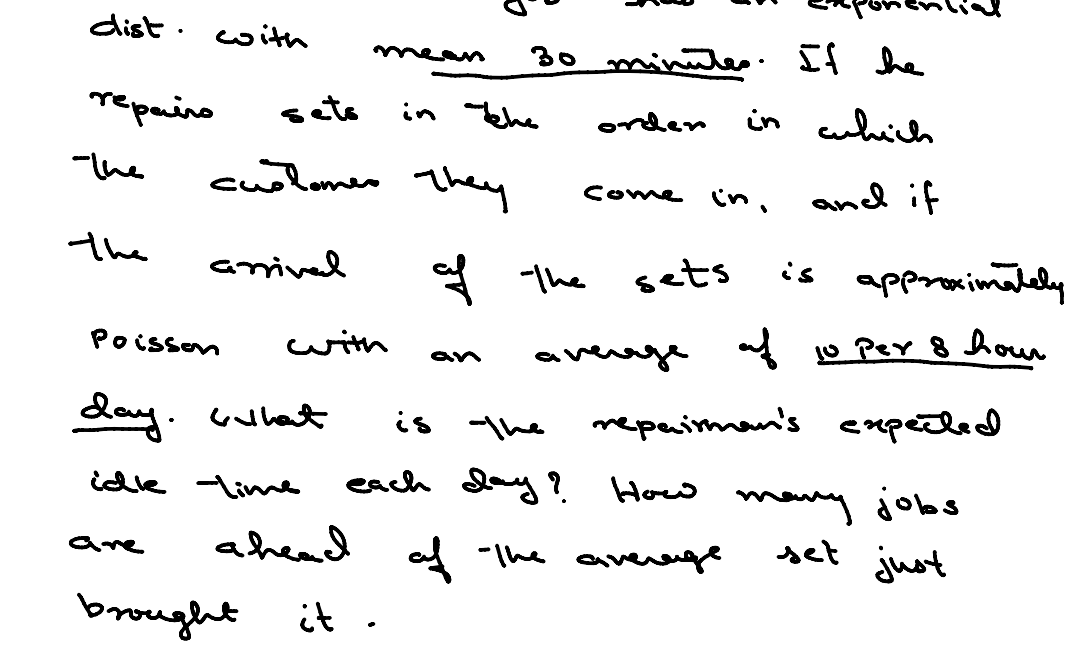 job has an exponential
dist. with mean 30 minutes. If he
repairs sets in the order in which
the customer they come in, and if
the arrival of the sets is approximately
Poisson with an average of 10 per 8 hour
day. What is the repairman's expected
idle time each day? How many jobs
are ahead of the average set just
brought it.